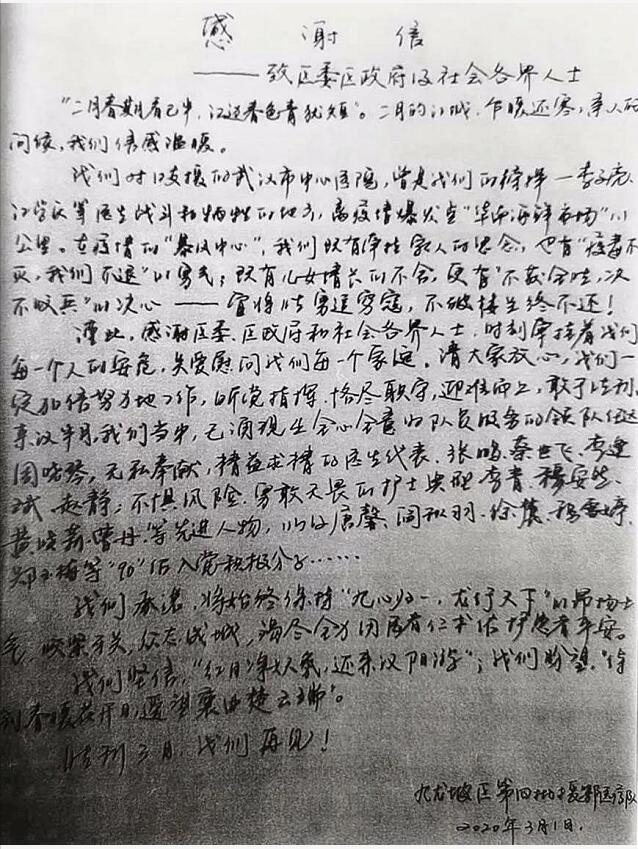 感谢信
——致区委区政府及社会各界人士
"二月春期看已半,江边春色青犹短"。二月的江城,乍暖还寒,亲人的
问候,我们倍感温暖。
我们对口支援的武汉市中心医院,曾是我们的榜样—李文亮、
江学庆等医生战斗和牺牲的地方,离疫情爆发点"华南海鲜市场"
公里。在疫情的"暴风中心",我们既有牵挂家人的思念,也有"疫毒不
灭,我们不退"的勇气;既有儿女情长的不舍,更有"不获全胜,决
不收兵"的决心——宜将剩勇追穷寇,不破楼兰终不还!
谨此,感谢区委、区政府和社会各界人士,时刻牵挂着我们
每一个人的安危,关爱慰问我们每一个家庭。请大家放心,我们一
定加倍努力地工作,听党指挥、恪尽职守,迎难而上,敢于胜利。
来汉半月,我们当中,已涌现出全心全意为队员服务的领队
周晓琴,无私奉献,精益求精的医生代表、张鹏、秦世飞、李建
斌、赵静;不惧风险、勇敢无畏的护士典型李青、穆安
黄晓莉、曹丹等先进人物,以及唐馨、周秋羽、徐 杨雪婷、
郑玉梅等"90"后入党积极分子……
我们承诺,将始终保持"九心归一,龙行天下"的昂扬士
气,咬紧牙关,众志成城,竭尽全力用 仁术佑护患者平安。
我们坚信,"红日净妖氛,还来汉阳游";我们盼望,"待
到春暖花开日,遥望襄 楚云端"。
胜利3月,我们再见!
九龙坡区第四批援鄂医疗队
2020年3月1日.